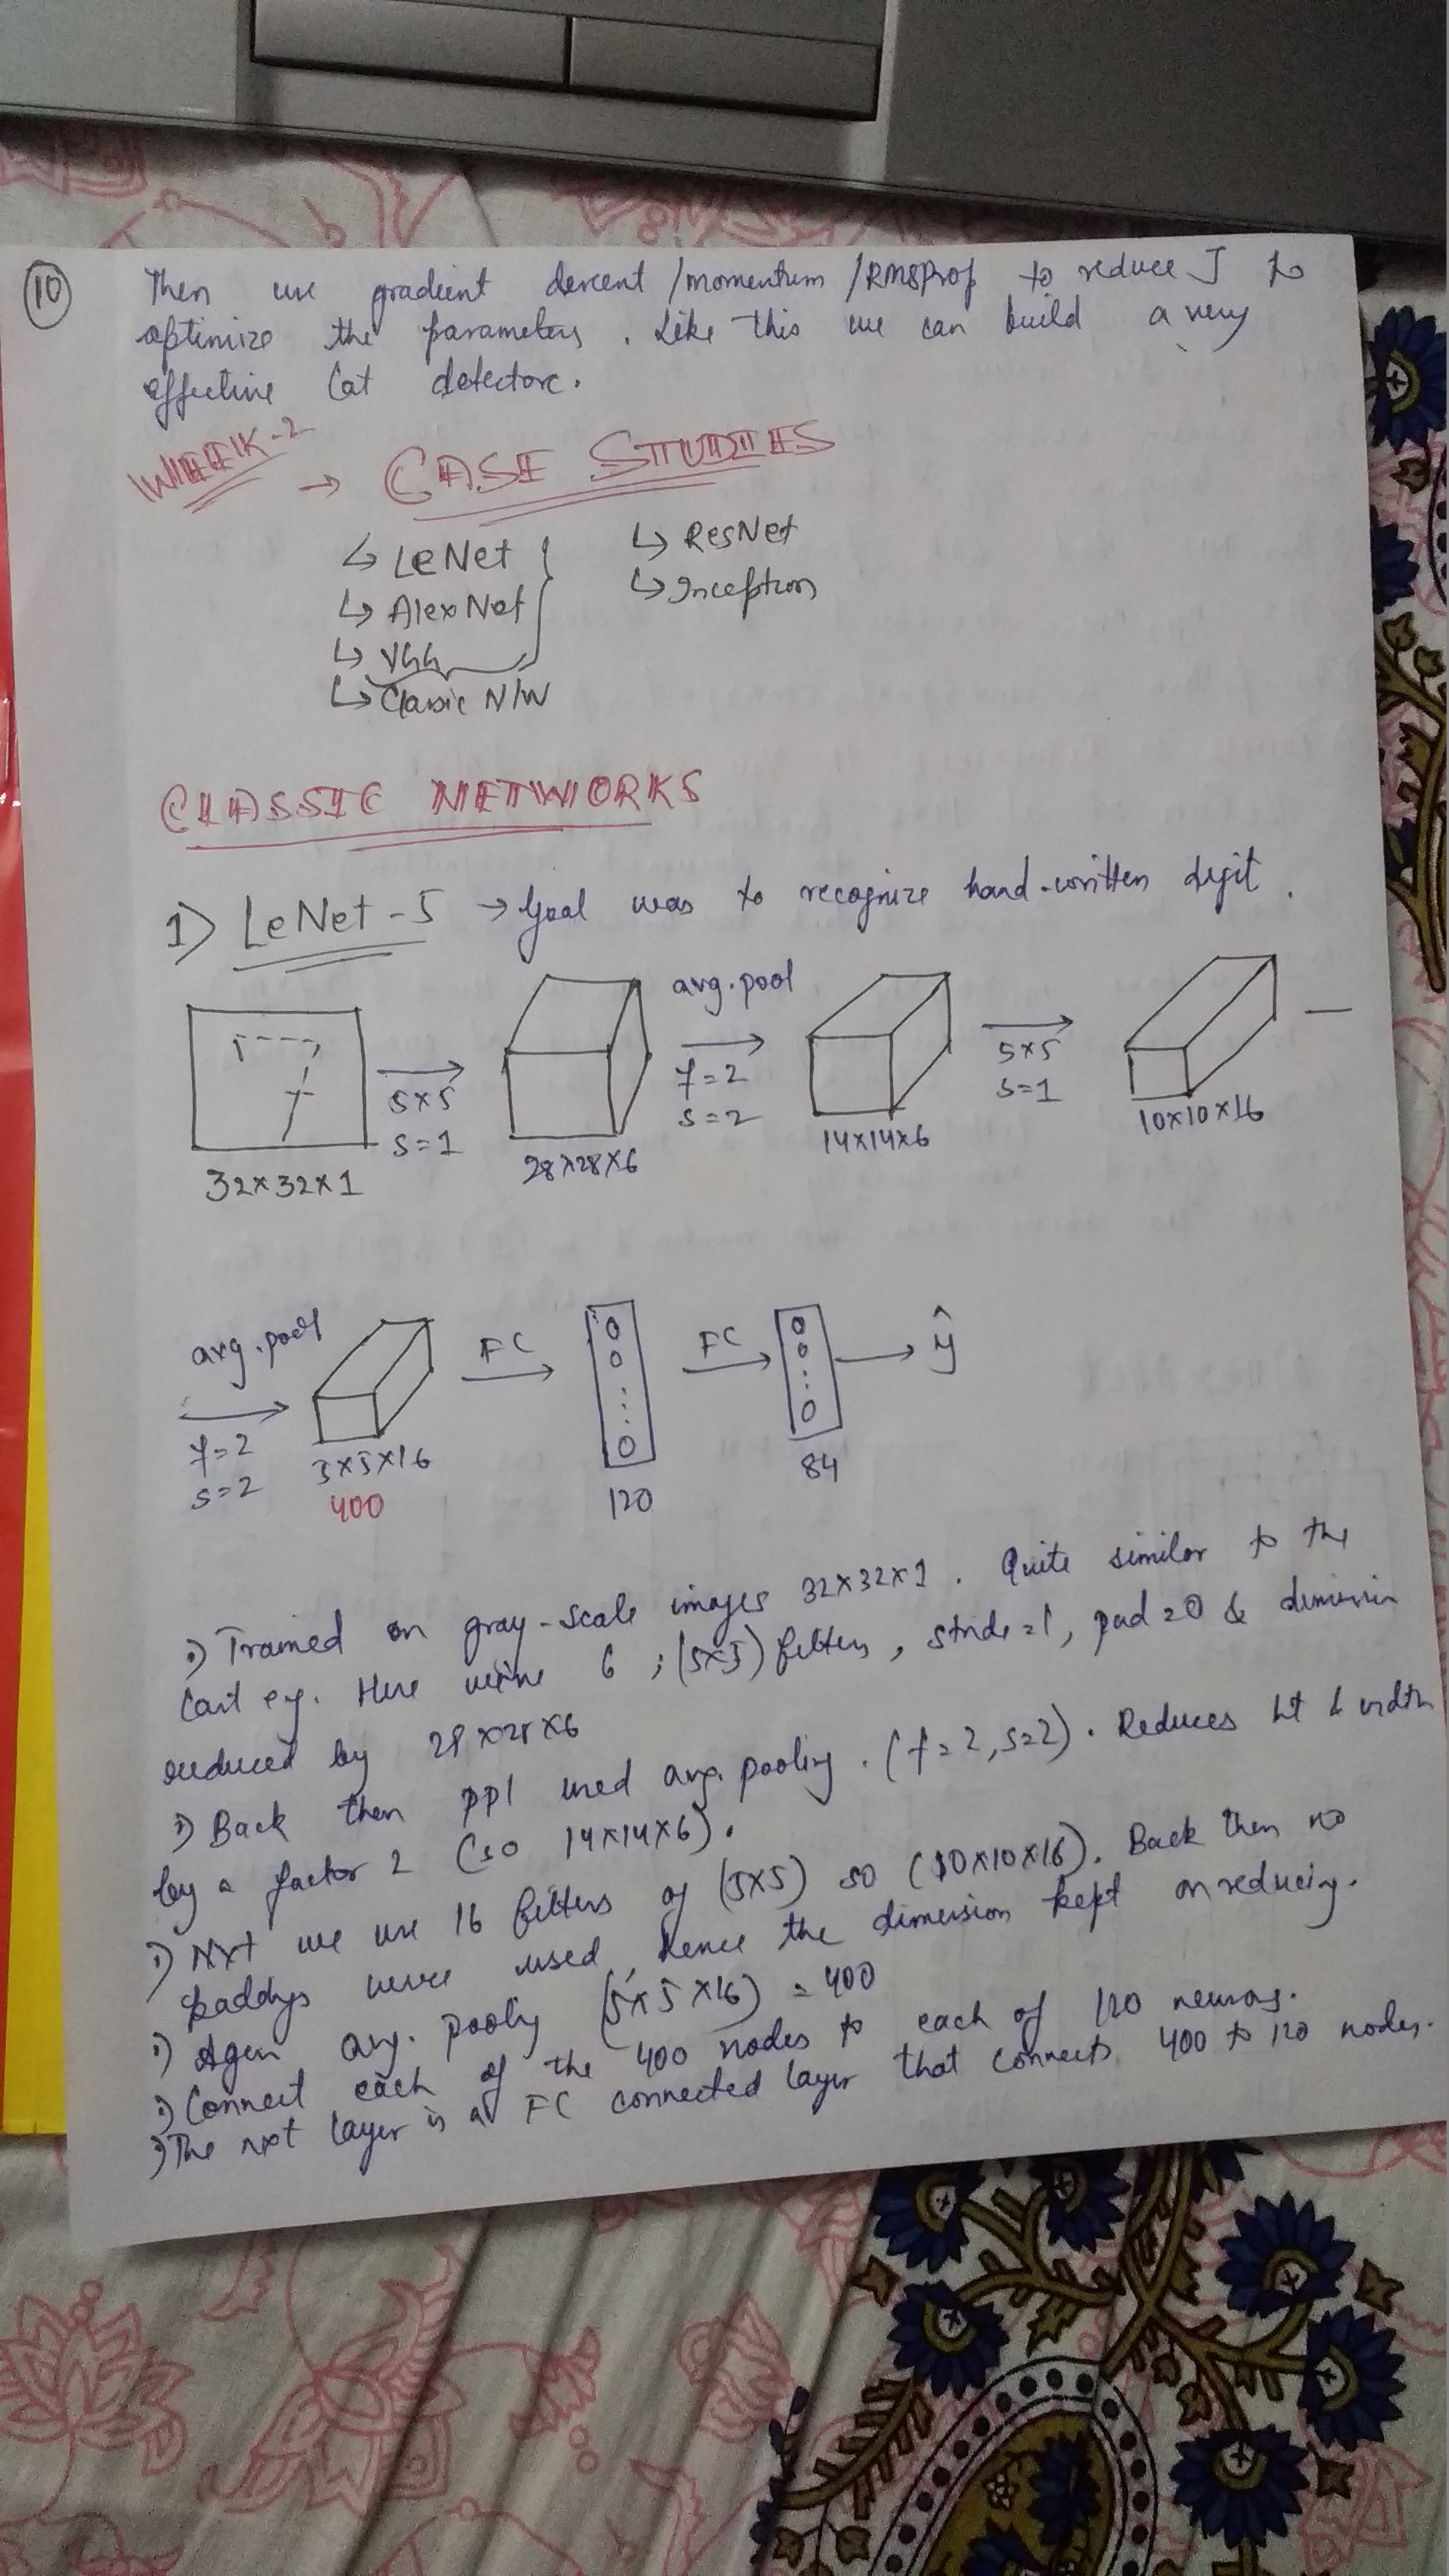 10
Then use gradient descent /momentum /RMSProp to reduce J to
optimize the parameters. Like this we can build a very
effective Cat detectore.
WEEK-2 → CASE STUDIES
↳ LeNet
↳ AlexNet
↳ VGG
↳ Classic N/W
↳ ResNet
↳ Inception
CLASSIC NETWORKS
1) LeNet-5 → Goal was to recognize hand-written digit.
32×32×1
5×5
s=1
28×28×6
avg.pool
f=2
s=2
14×14×6
5×5
s=1
10×10×16
avg.pool
f=2
s=2
5×5×16
400
FC
120
FC
84
ŷ
Trained on gray-scale images 32×32×1. Quite similar to the
last eg. Here we use 6, (5×5) filters, stride=1, pad=0 & dimension
reduced by 28×28×6
Back then ppl used avg. pooling. (f=2, s=2). Reduces ht & width
by a factor 2 (so 14×14×6).
Nxt we use 16 filters of (5×5) so (10×10×16). Back then no
paddings were used, hence the dimension kept on reducing.
Again avg. pooling (5×5×16) = 400
Connect each of the 400 nodes to each of 120 neurons.
The nxt layer is a FC connected layer that connects 400 to 120 nodes.